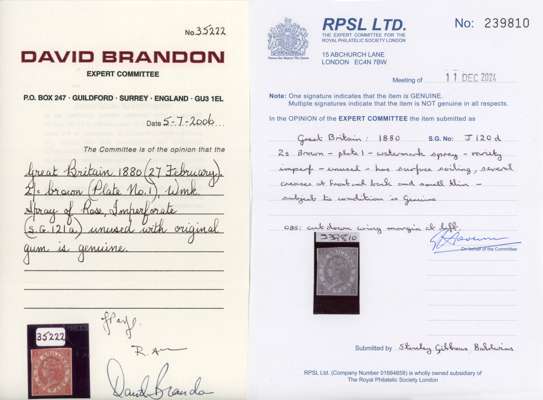 No. 35222
DAVID BRANDON
EXPERT COMMITTEE
P.O. BOX 247 · GUILDFORD · SURREY · ENGLAND · GU3 1EL
Date 5-7-2006
The Committee is of the opinion
Great Britain 1880 (27 February)
2s brown (Plate No.1), Wmk
Spray of Rose, Imperforate
(S.G. 121a) unused with original
gum is genuine.
35222
David Brandon
RPSL LTD.
THE EXPERT COMMITTEE FOR THE
ROYAL PHILATELIC SOCIETY LONDON
No: 239810
15 ABCHURCH LANE
LONDON EC4N 7BW
Meeting of 11 DEC 2024
Note: One signature indicates that the item is GENUINE.
Multiple signatures indicate that the item is NOT genuine in all respects.
In the OPINION of the EXPERT COMMITTEE the item submitted as
Great Britain: 1880 S.G. No: J120d
2s Brown - plate 1 - watermark spray - variety
imperf - unused - has surface soiling, several
creases at front and back and small thin -
subject to condition is genuine
OBS: cut down wing margin at left.
239810
On behalf of the Committee
Submitted by Stanley Gibbons Baldwins
RPSL Ltd. (Company Number 01664658) is wholly owned subsidiary of
The Royal Philatelic Society London